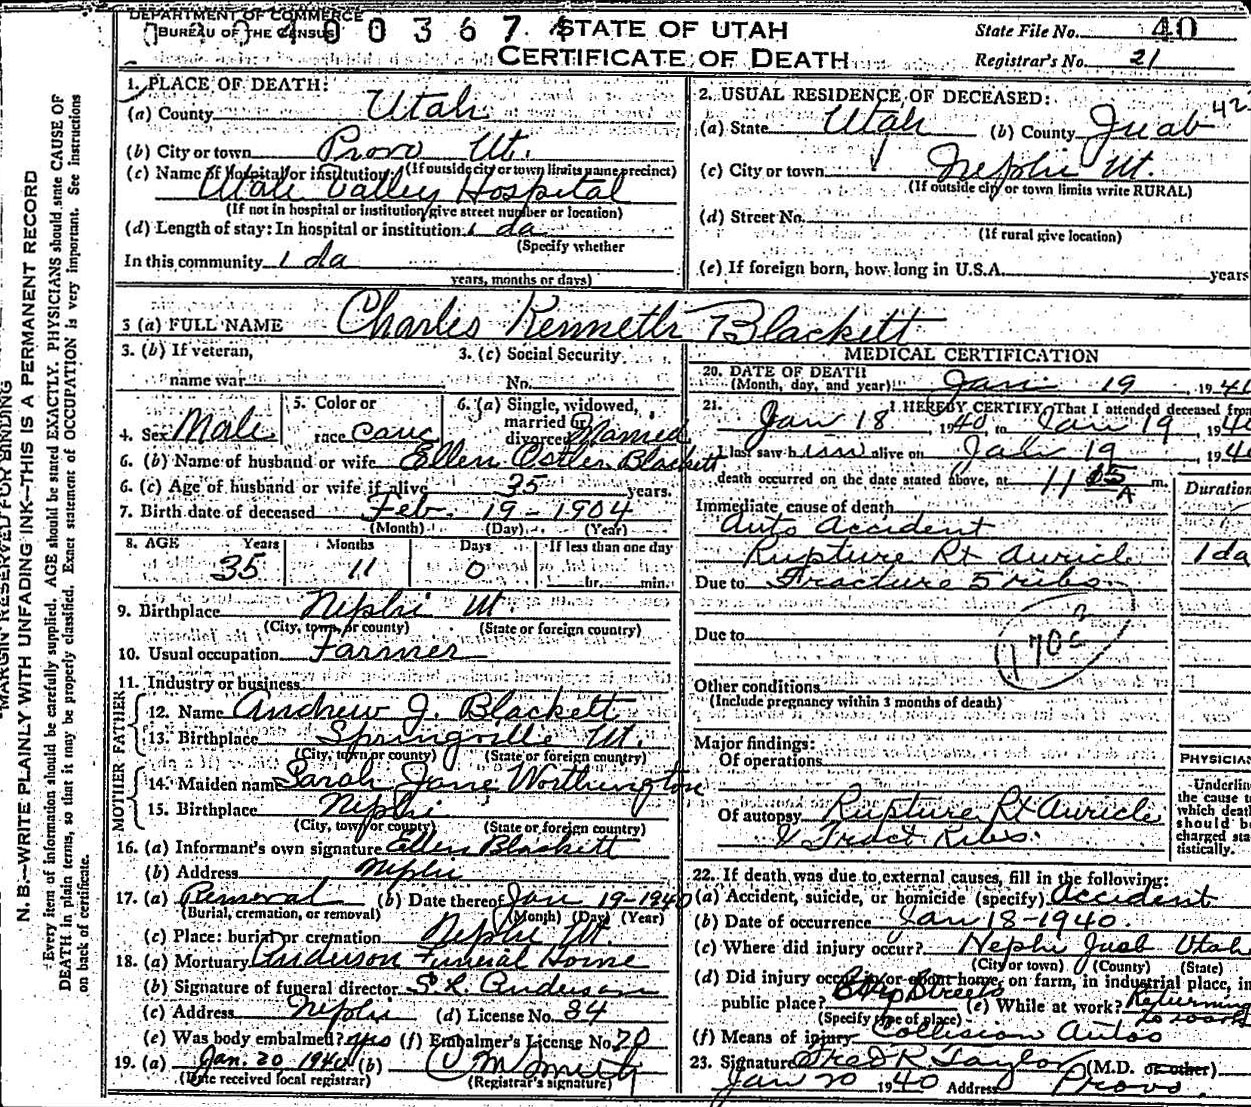 DEPARTMENT OF COMMERCE
BUREAU OF THE CENSUS
0 0 3 6 7
STATE OF UTAH
CERTIFICATE OF DEATH
State File No. 40
Registrar's No. 21
MARGIN RESERVED FOR BINDING
N. B.—WRITE PLAINLY WITH UNFADING INK—THIS IS A PERMANENT RECORD
Every item of information should be carefully supplied. AGE should be stated EXACTLY. PHYSICIANS should state CAUSE OF
DEATH in plain terms, so that it may be properly classified. Exact statement of OCCUPATION is very important. See instructions
on back of certificate.
1. PLACE OF DEATH:
(a) County Utah
(b) City or town Provo Ut.
(If outside city or town limits name precinct)
(c) Name of hospital or institution:
Utah Valley Hospital
(If not in hospital or institution give street number or location)
(d) Length of stay: In hospital or institution 1 da
(Specify whether
In this community 1 da
years, months or days)
2. USUAL RESIDENCE OF DECEASED:
42
(a) State Utah (b) County Juab
(c) City or town Nephi Ut.
(If outside city or town limits write RURAL)
(d) Street No.
(If rural give location)
(e) If foreign born, how long in U.S.A. years
3 (a) FULL NAME Charles Kenneth Blackett
3. (b) If veteran,
name war
3. (c) Social Security
No.
4. Sex Male
5. Color or
race Cauc
6. (a) Single, widowed,
married or
divorced Married
6. (b) Name of husband or wife Ellen Ostler Blackett
6. (c) Age of husband or wife if alive 35 years.
7. Birth date of deceased Feb. 19 - 1904
(Month) (Day) (Year)
8. AGE Years Months Days If less than one day
35 11 0 hr. min.
9. Birthplace Nephi Ut
(City, town, or county) (State or foreign country)
10. Usual occupation Farmer
11. Industry or business
FATHER
12. Name Andrew J. Blackett
13. Birthplace Springville Ut.
(City, town or county) (State or foreign country)
MOTHER
14. Maiden name Sarah Jane Worthington
15. Birthplace Nephi
(City, town or county) (State or foreign country)
16. (a) Informant's own signature Ellen Blackett
(b) Address Nephi
17. (a) Removal (b) Date thereof Jan 19-1940
(Burial, cremation, or removal) (Month) (Day) (Year)
(c) Place: burial or cremation Nephi Ut.
18. (a) Mortuary Anderson Funeral Home
(b) Signature of funeral director S. R. Anderson
(c) Address Nephi (d) License No. 34
(e) Was body embalmed? yes (f) Embalmer's License No. 70
19. (a) Jan. 20 1940 (b)
(Date received local registrar) (Registrar's signature)
MEDICAL CERTIFICATION
20. DATE OF DEATH
(Month, day, and year) Jan 19, 1940
21. I HEREBY CERTIFY, That I attended deceased from
Jan 18, 1940, to Jan 19, 1940
I last saw him alive on Jan 19 1940
death occurred on the date stated above, at 11 05 A m.
Duration
Immediate cause of death
Auto Accident
Rupture Rt Auricle 1 da
Due to Fracture 5 ribs
Due to
170c
Other conditions
(Include pregnancy within 3 months of death)
Major findings:
Of operations
PHYSICIAN
Underline
the cause to
which death
should be
charged sta-
tistically.
Of autopsy Rupture Rt Auricle
& Fract Ribs.
22. If death was due to external causes, fill in the following:
(a) Accident, suicide, or homicide (specify) Accident
(b) Date of occurrence Jan 18-1940.
(c) Where did injury occur? Nephi Juab Utah
(City or town) (County) (State)
(d) Did injury occur in or about home, on farm, in industrial place, in
public place? City Street (e) While at work? Returning
to work
(Specify type of place)
(f) Means of injury Collision Autos
23. Signature Fred R. Taylor (M.D. or other)
Jan 20 1940 Address Provo.